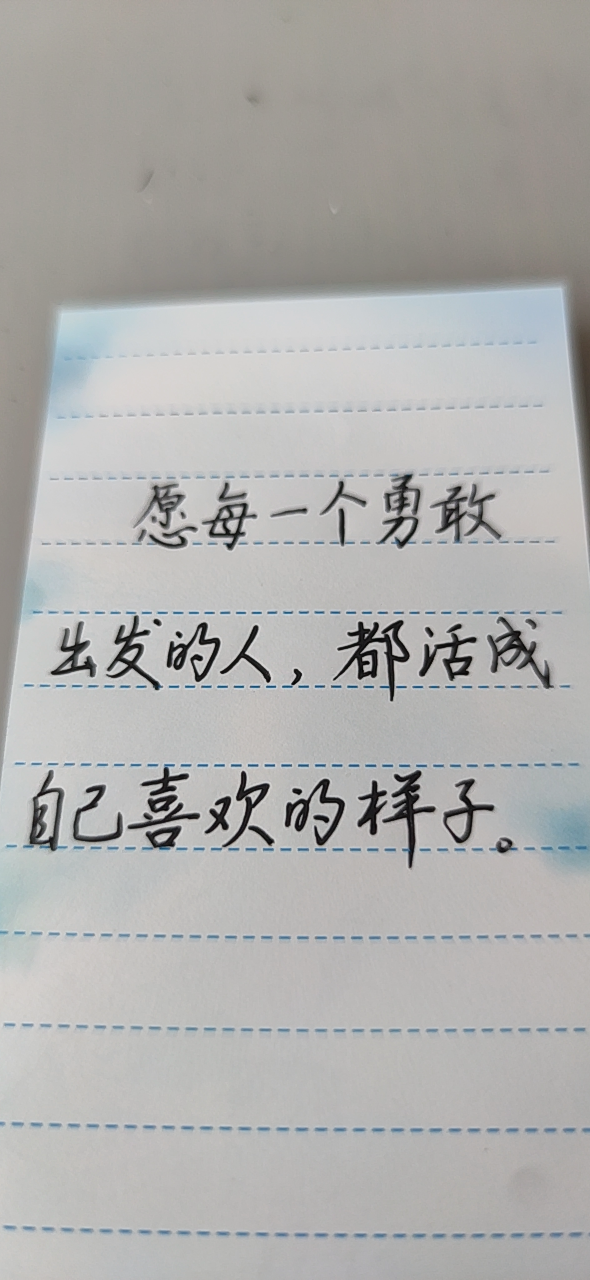 愿每一个勇敢
出发的人，都活成
自己喜欢的样子。